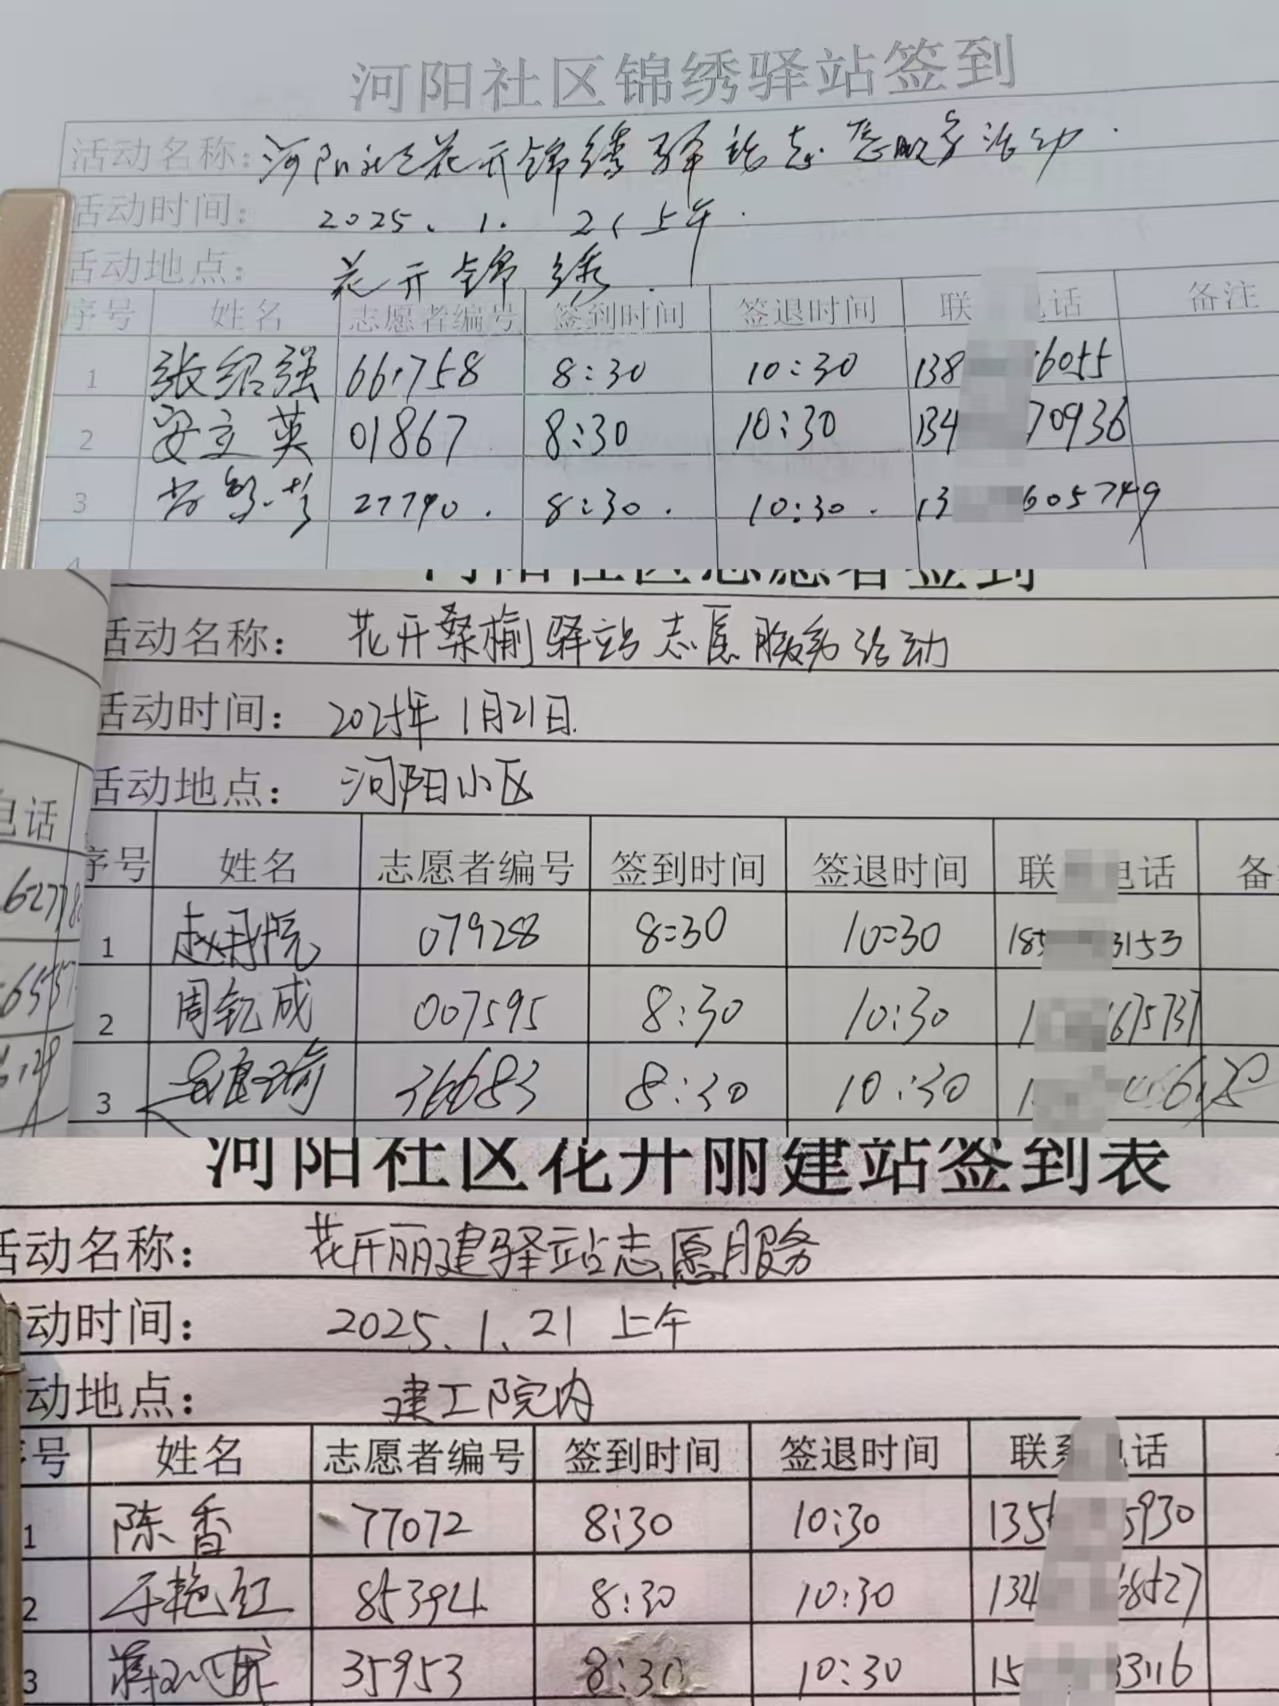 河阳社区锦绣驿站签到
活动名称: 河阳社区花开锦绣驿站志愿服务活动
活动时间: 2025.1.21上午
活动地点: 花开锦绣
序号 姓名 志愿者编号 签到时间 签退时间 联 电话 备注
1 张绍强 661758 8:30 10:30 138 6055
2 安立英 01867 8:30 10:30 134 70936
3 27790 8:30 10:30 13 605749
4
河阳社区志愿者签到
活动名称: 花开桑榆驿站志愿服务活动
活动时间: 2025年1月21日
活动地点: 河阳小区
电话
序号 姓名 志愿者编号 签到时间 签退时间 联 电话 备
1 079288 8:30 10:30 185 3153
2 周钇成 007595 8:30 10:30 1 675737
3 36683 8:30 10:30 1
河阳社区花开丽建站签到表
活动名称: 花开丽建驿站志愿服务
动时间: 2025.1.21 上午
动地点: 建工院内
号 姓名 志愿者编号 签到时间 签退时间 联系 电话
1 陈香 77072 8:30 10:30 135 5930
2 于艳红 85394 8:30 10:30 134 68527
3 35953 8:30 10:30 15 33116